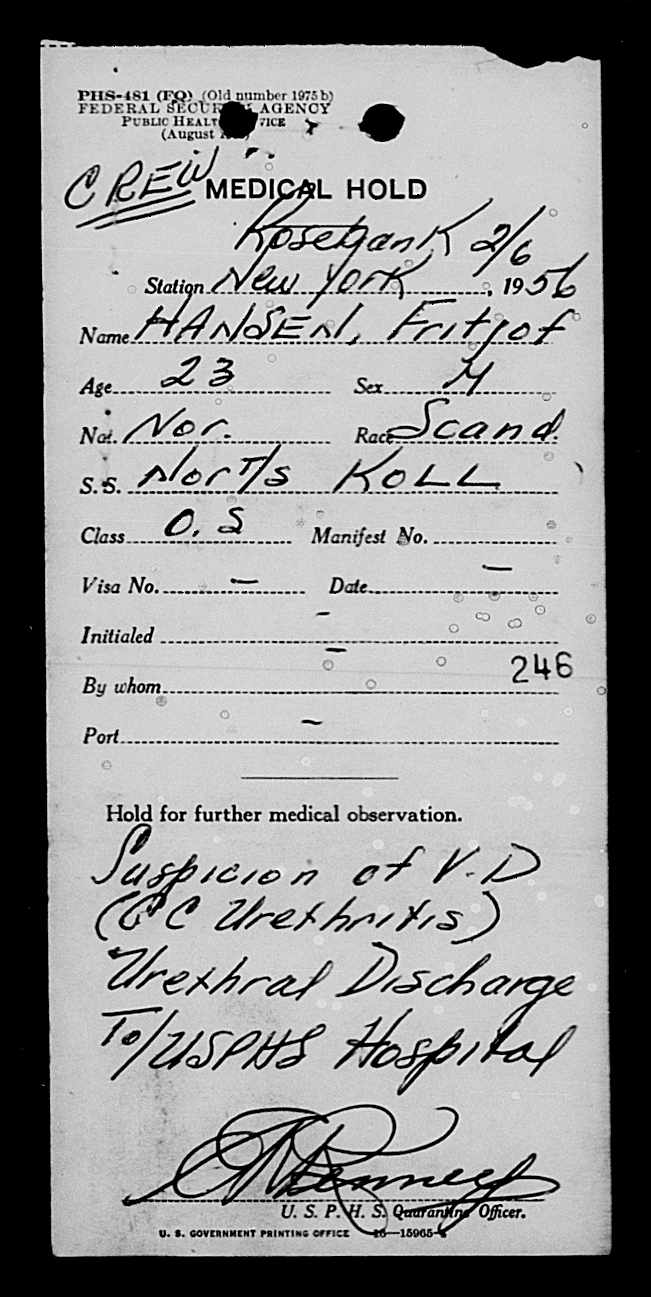 PHS-481 (FQ) (Old number 1975 b)
FEDERAL SECURITY AGENCY
PUBLIC HEALTH SERVICE
(August
CREW
MEDICAL HOLD
Rosebank 2/6
Station New York, 1956
Name HANSEN, Fritjof
Age 23 Sex M
Nat. Nor. Race Scand.
S.S. Nor T/S KOLL
Class O.S Manifest No.
Visa No. — Date —
Initialed -
246
By whom —
Port —
Hold for further medical observation.
Suspicion of V.D
(GC Urethritis)
Urethral Discharge
To/USPHS Hospital
U. S. P. H. S. Quarantine Officer.
U. S. GOVERNMENT PRINTING OFFICE 16—15965-1